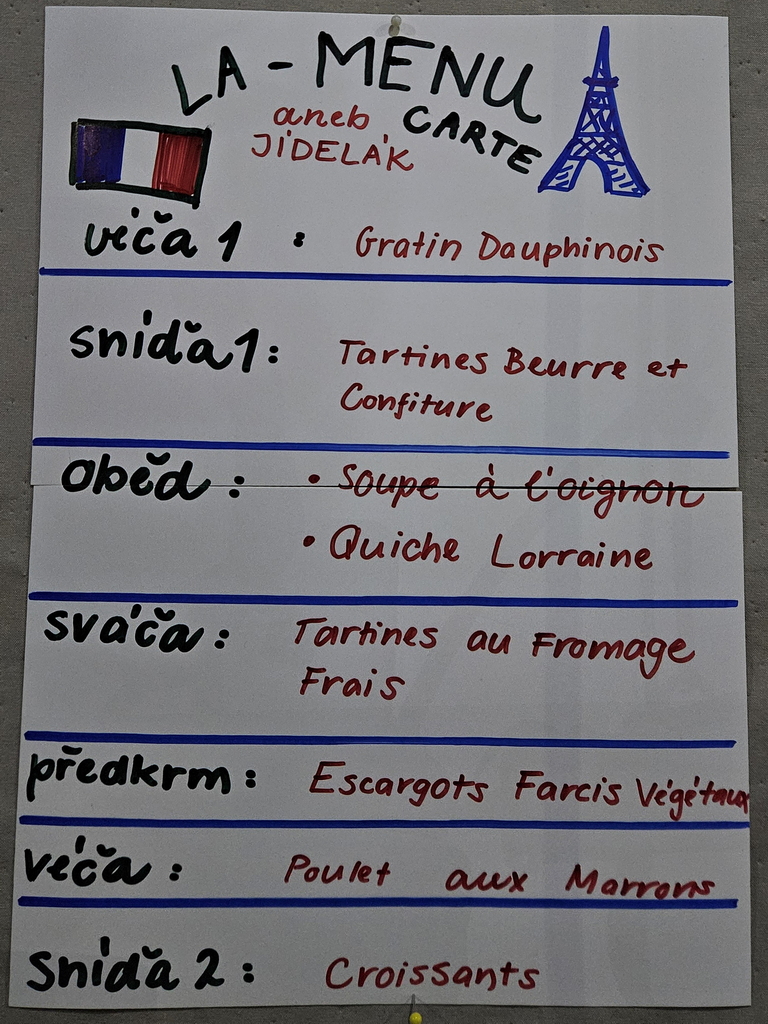 LA - MENU
CARTE
aneb
JÍDELÁK
véča 1 : Gratin Dauphinois
snídǎa 1 : Tartines Beurre et
Confiture
oběd : • Soupe à l'oignon
• Quiche Lorraine
sváča : Tartines au Fromage
Frais
předkrm : Escargots Farcis Végétaux
véča : Poulet aux Marrons
Snídǎa 2 : Croissants